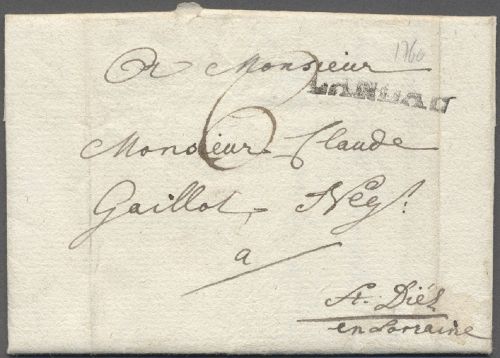 1760
A Monsieur
LANDAU
6
Monsieur Claude
Gaillot, Neg.t
a
St. Diéz
en Lorraine